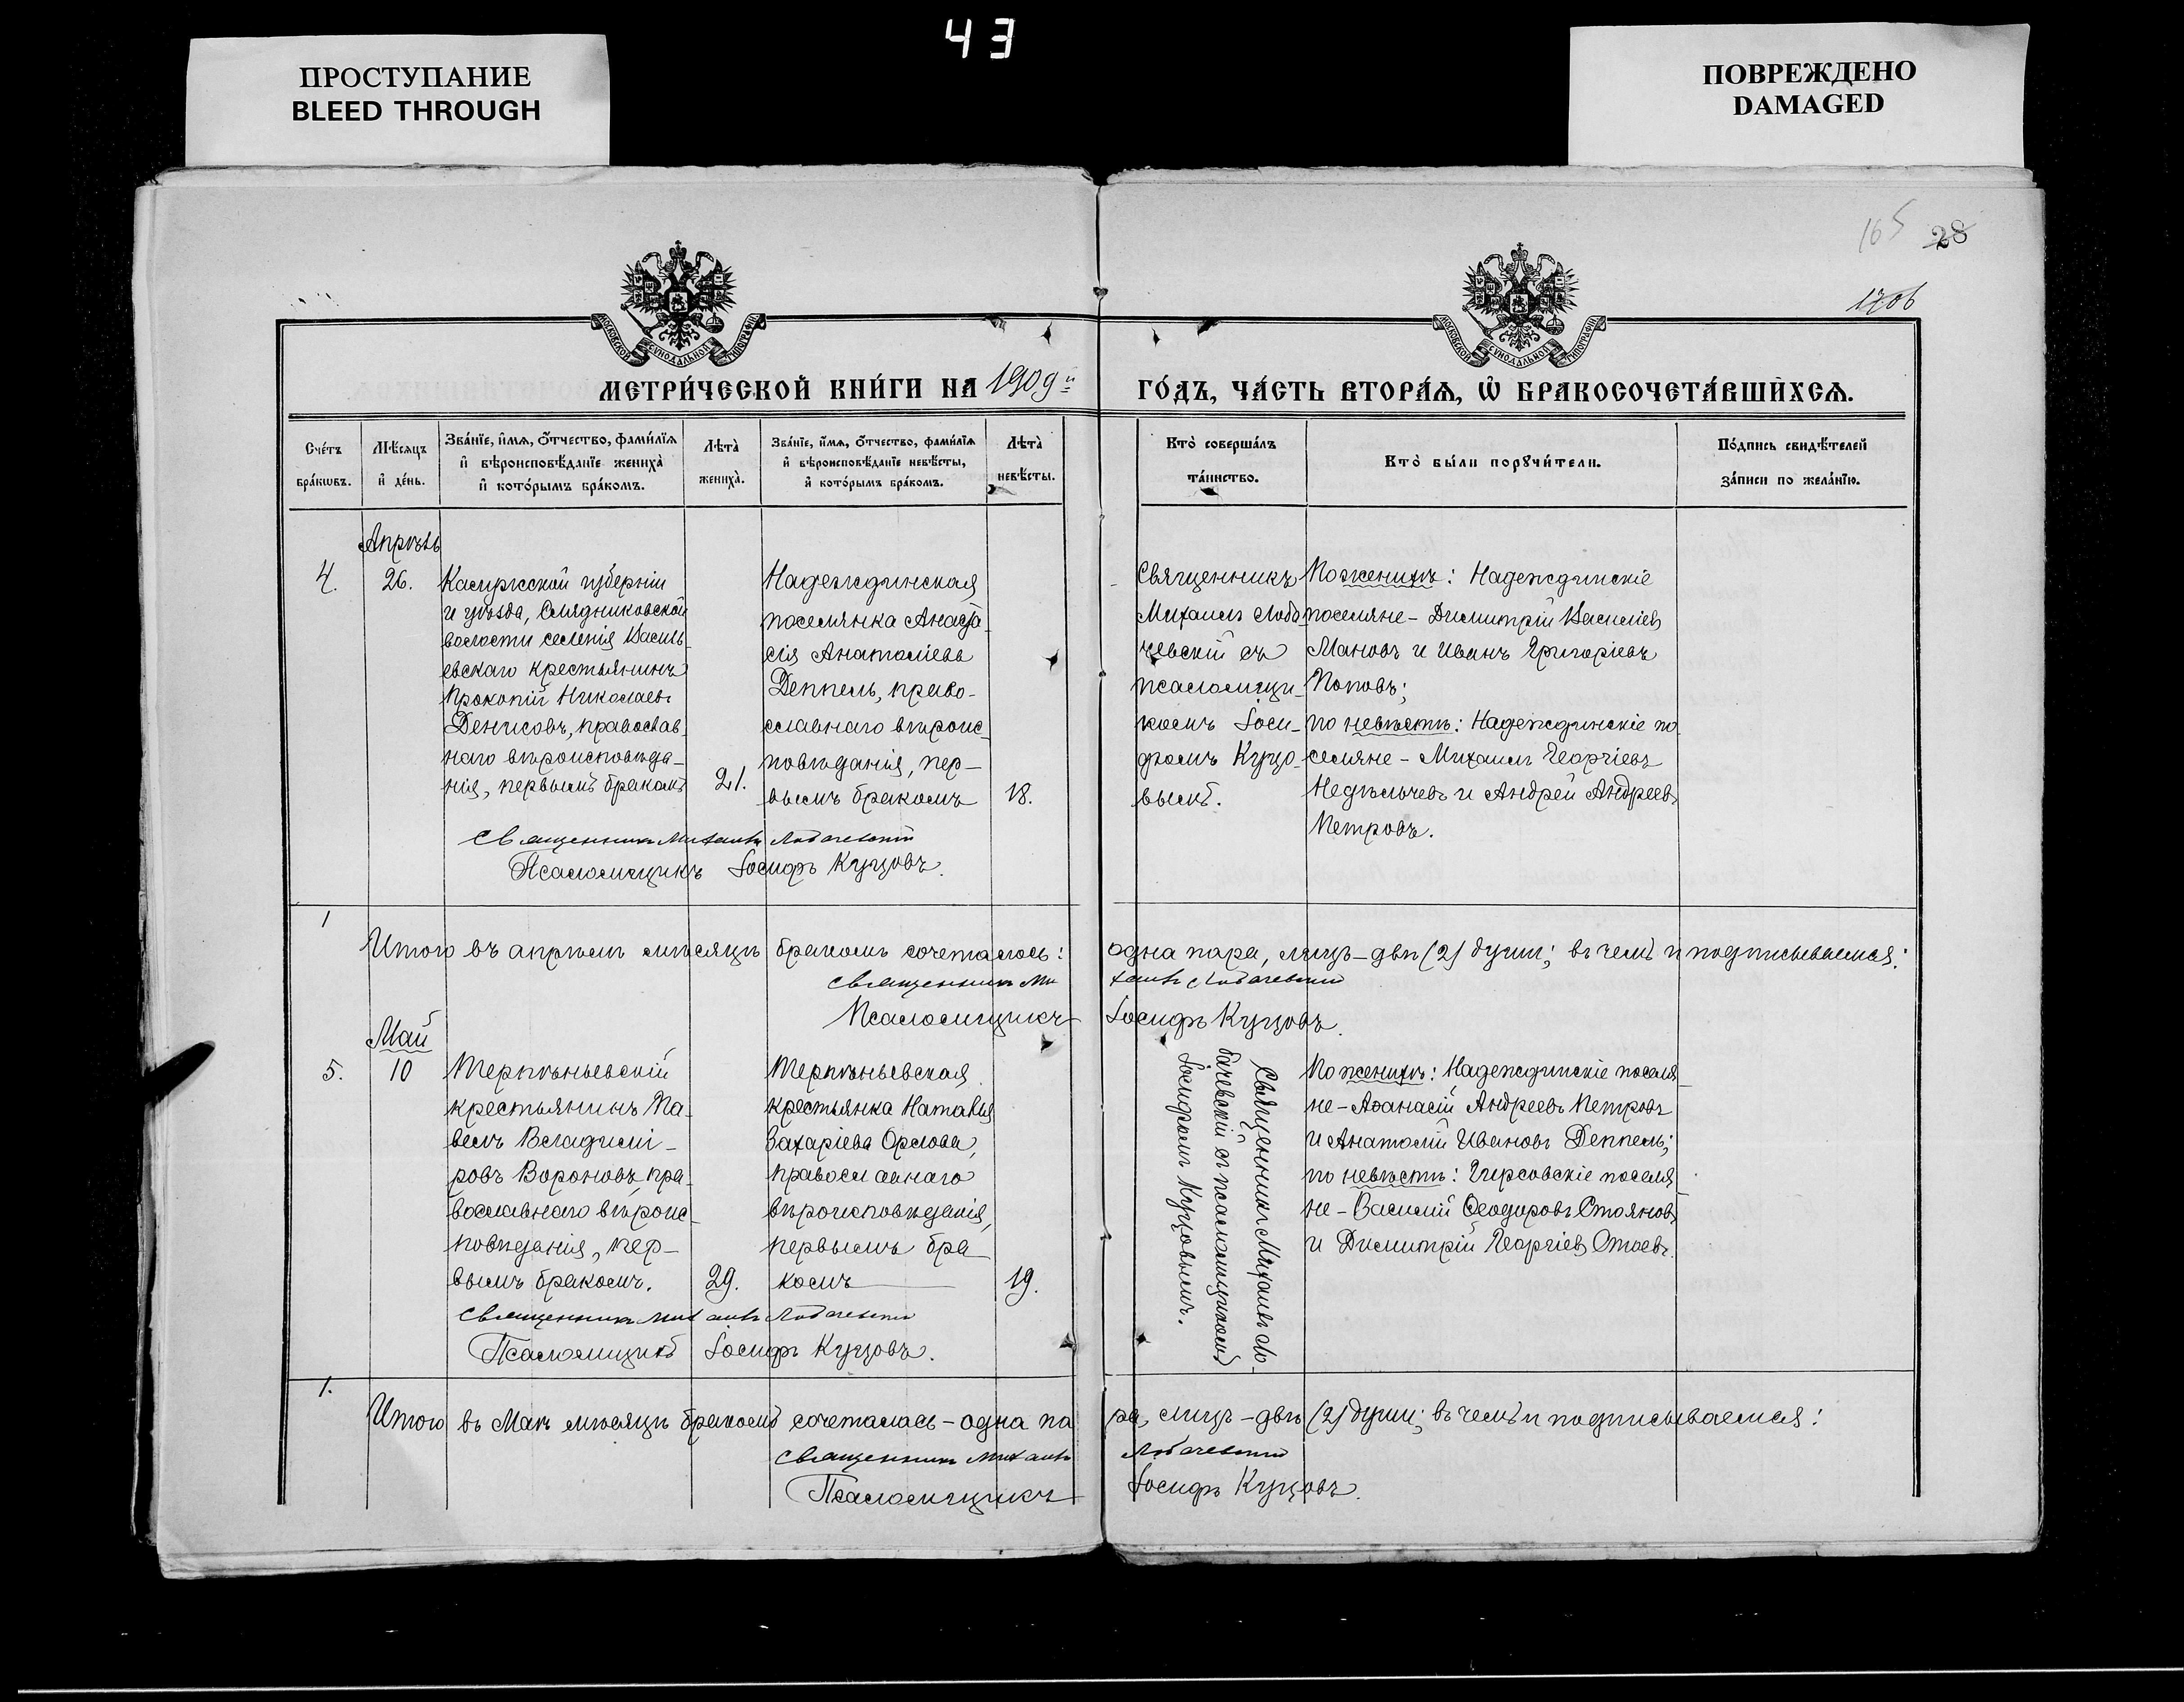 43
ПРОСТУПАНИЕ
BLEED THROUGH
ПОВРЕЖДЕНО
DAMAGED
165 28
1706
МОСКОВСКОЙ СѴНОДАЛЬНОЙ ТИПОГРАФІИ
МОСКОВСКОЙ СѴНОДАЛЬНОЙ ТИПОГРАФІИ
МЕТРИ́ЧЕСКОЙ КНИ́ГИ НА 1909й ГО́ДЪ, ЧА́СТЬ ВТОРА́Ѧ, Ѡ҆ БРАКОСОЧЕТА́ВШИХСѦ.
Сче́тъ
бра́кѡвъ.
Мѣ́сяцъ
и҆ де́нь.
Зва́нїе, и҆́мѧ, ѻ҆́тчество, фами́лїѧ
и҆ вѣроисповѣ́данїе жениха̀
и҆ кото́рымъ бра́комъ.
Лѣта̀
жениха̀.
Зва́нїе, и҆́мѧ, ѻ҆́тчество, фами́лїѧ
и҆ вѣроисповѣ́данїе невѣ́сты,
и҆ кото́рымъ бра́комъ.
Лѣта̀
невѣ́сты.
Кто̀ соверша́лъ
та́инство.
Кто̀ бы́ли порꙋчи́тели.
По́дпись свидѣ́телей
за́писи по жела́нїю.
Апрѣль
4.
26.
Калужской губерніи
и уѣзда, Слядниковской
волости селенія Василь
евскаго крестьянинъ
Прокопій Николаевъ
Денисовъ, православ
наго вѣроисповѣда-
нія, первымъ бракомъ
21.
Надеждинская
поселянка Анаста-
сія Анатоліева
Деппель, право-
славнаго вѣроис-
повѣданія, пер-
вымъ бракомъ
18.
Священникъ
Михаилъ Лоба-
чевскій съ
псаломщи-
комъ Іоси-
фомъ Куцо-
вымъ.
По женихѣ: Надеждинскіе
поселяне - Димитрій Василіевъ
Мановъ и Иванъ Григоріевъ
Поповъ;
по невѣстѣ: Надеждинскіе по-
селяне - Михаилъ Георгіевъ
Недѣльчевъ и Андрей Андреевъ
Петровъ.
Священникъ Михаилъ Лобачевскій
Псаломщикъ Іосифъ Куцовъ.
1
Итого въ апрѣлѣ мѣсяцѣ бракомъ сочеталось: одна пара, лицъ - двѣ (2) души; въ чемъ и подписываемся:
Священникъ Михаилъ Лобачевскій
Псаломщикъ Іосифъ Куцовъ.
Май
5.
10
Терпѣньевскій
крестьянинъ Па-
велъ Владимі-
ровъ Вороновъ, пра-
вославнаго вѣроис-
повѣданія, пер-
вымъ бракомъ.
29.
Терпѣньевская
крестьянка Наталія
Захаріева Орлова,
православнаго
вѣроисповѣданія,
первымъ бра-
комъ
19.
Священникъ Михаилъ Ло-
бачевскій съ псаломщикомъ
Іосифомъ Куцовымъ.
По женихѣ: Надеждинскіе поселя-
не - Аѳанасій Андреевъ Петровъ
и Анатолій Ивановъ Деппель;
по невѣстѣ: Гирсовскіе поселя-
не - Василій Ѳеодоровъ Стояновъ
и Димитрій Георгіевъ Стоевъ.
Священникъ Михаилъ Лобачевскій
Псаломщикъ Іосифъ Куцовъ.
1.
Итого въ Маѣ мѣсяцѣ бракомъ сочеталась - одна пара, лицъ - двѣ (2) души; въ чемъ и подписываемся:
Священникъ Михаилъ Лобачевскій
Псаломщикъ Іосифъ Куцовъ.